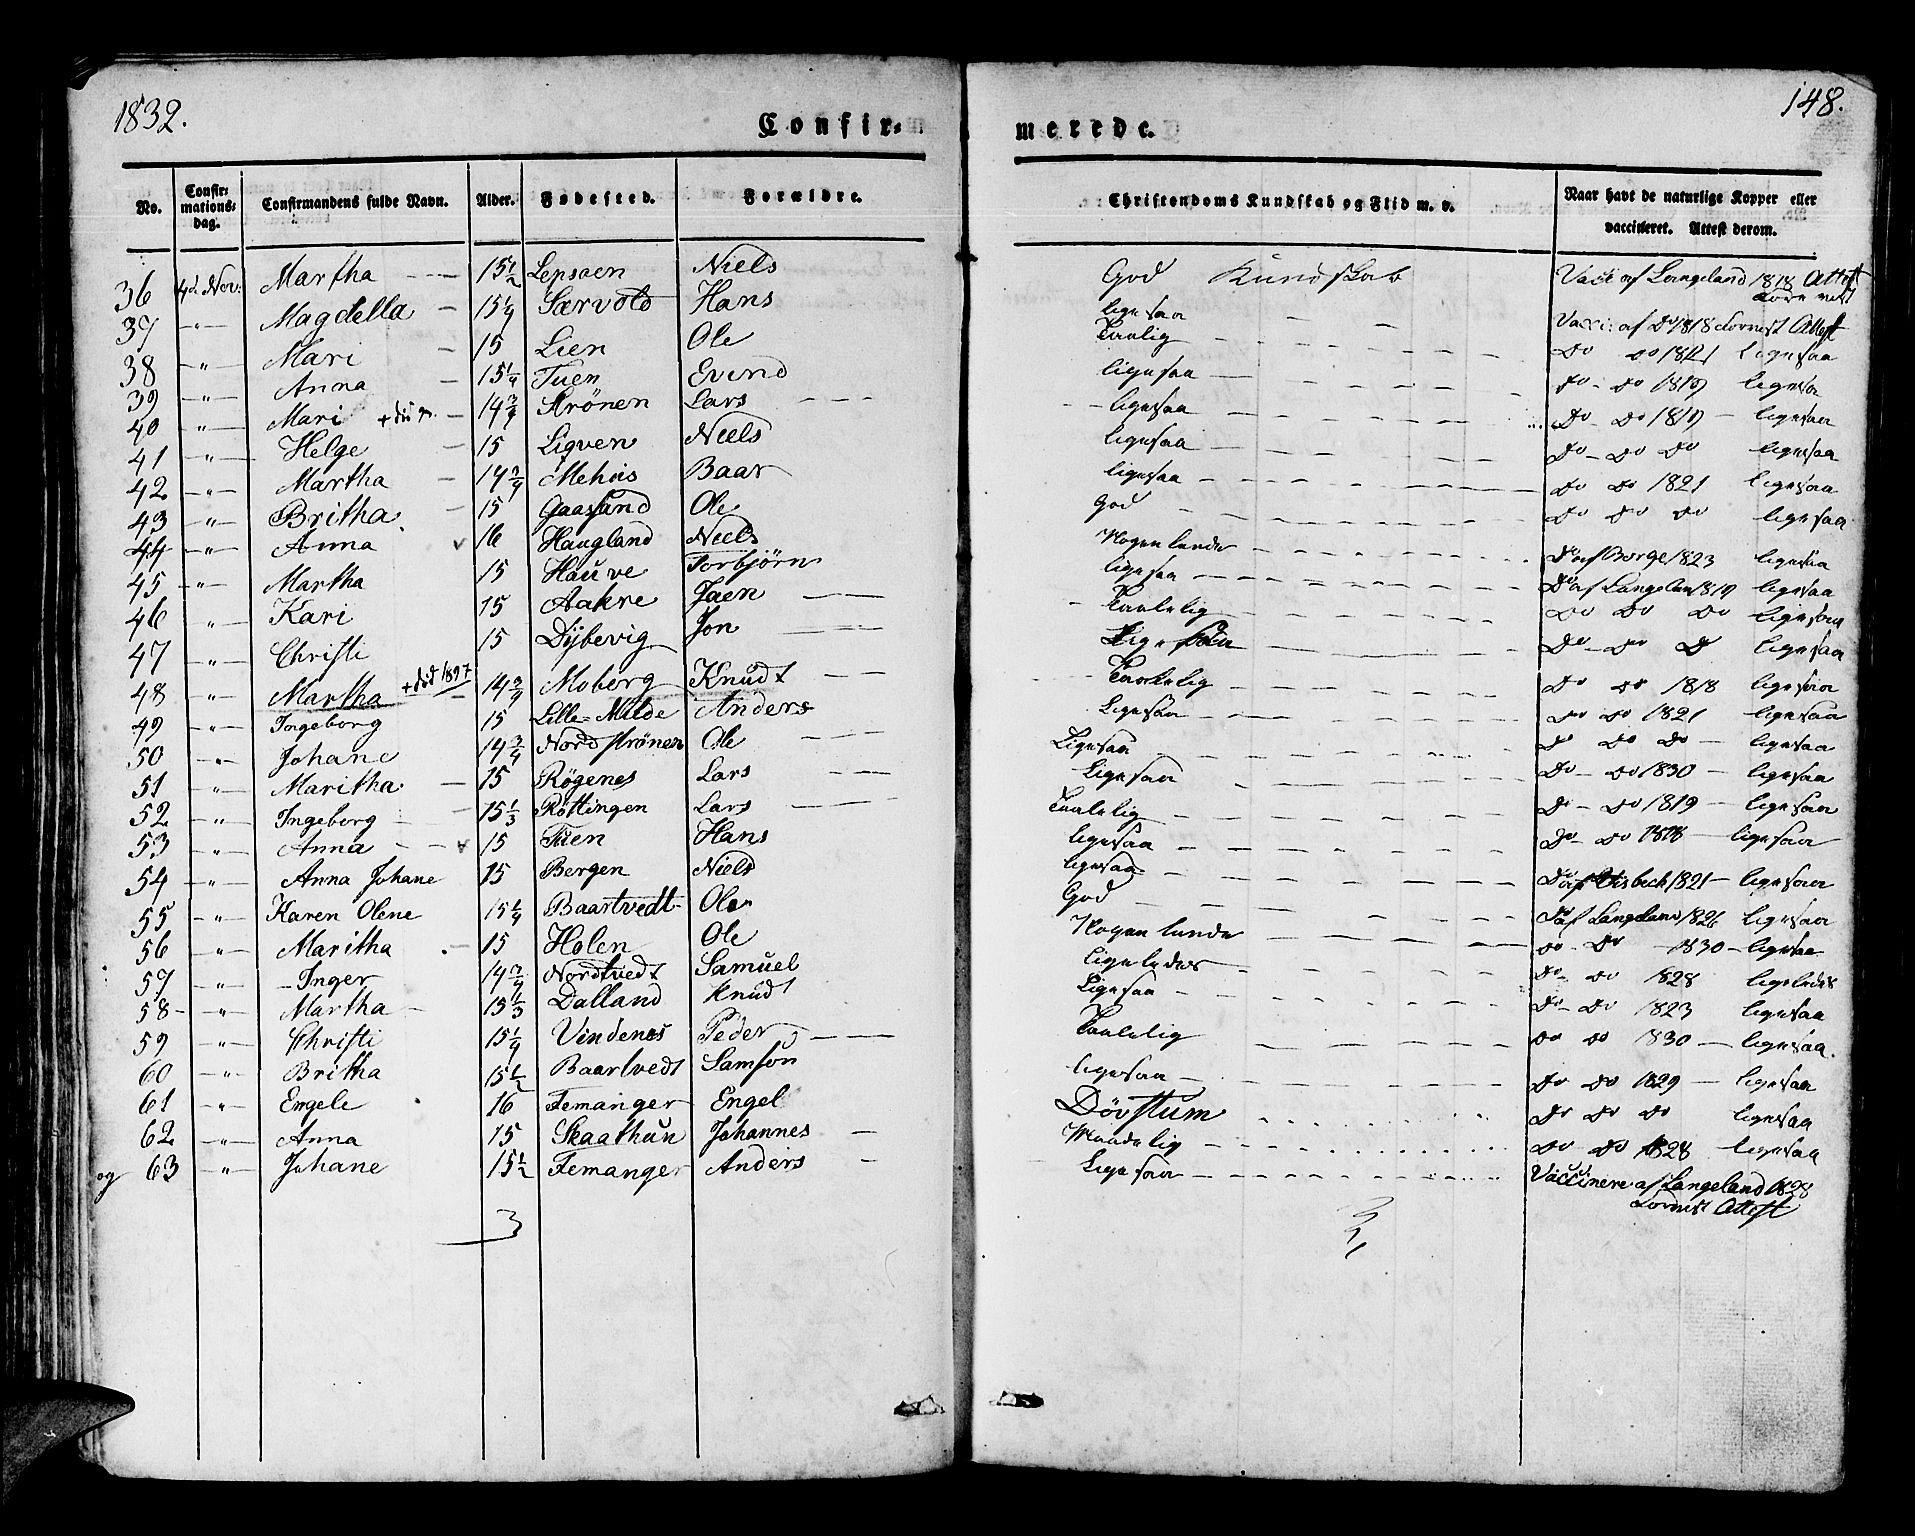 1832.
148.
Confir-
merede.
No. Confirmationsdag. Confirmandens fulde Navn. Alder. Fødested. Forældre. Christendoms Kundskab og Flid m. v. Naar havt de naturlige Kopper eller vaccineret. Attest derom.
36 4d Nov: Martha 15 1/2 Lepsøen Niels God Kundskab Vacc af Langeland 1818 Attest
37 -"- Magdella 15 1/4 Særvold Hans ligesaa Vacci: af Do 1818 Attest
38 -"- Mari 15 Lien Ole Taalelig Do Do 1821 ligesaa
39 -"- Anna 15 1/4 Tuen Evind ligesaa Do - Do 1819 ligesaa
40 -"- Mari 14 3/4 Strönen Lars ligesaa Do - Do 1819 - ligesaa
41 -"- Helge 15 Ligven Niels ligesaa Do - Do Do ligesaa
42 -"- Martha 14 3/4 Mehus Baar ligesaa Do Do 1821 ligesaa
43 -"- Britha 15 Gaassand Ole God Do Do Do ligesaa
44 -"- Anna 16 Haugland Niels Nogenlunde Do af Borge 1823 ligesaa
45 -"- Martha 15 Hauve Torbjørn ligesaa Do af Langelan 1819 ligesaa
46 -"- Kari 15 Aakre Jaen Taalelig Do Do Do ligesaa
47 -"- Christi 15 Dybevig Jon Ligesaa Do - Do Do ligesaa
48 -"- Martha + död 1897 14 3/4 Moberg Knudt Taalelig Do Do 1818 ligesaa
49 -"- Ingeborg 15 Lille-Milde Anders Ligesaa Do Do 1821 ligesaa
50 -"- Johane 14 3/4 Nordstrønen Ole Ligesaa Do Do Do - ligesaa
51 -"- Maritha 15 Røgenes Lars Ligesaa Do - Do 1830 - ligesaa
52 -"- Ingeborg 15 1/3 Røttingen Lars Taalelig Do - Do 1819 - ligesaa
53 -"- Anna 15 Tuen Hans ligesaa Do - Do 1818 - ligesaa
54 -"- Anna Johane 15 Bergen Niels ligesaa Do af Wisbech 1821 - ligesaa
55 -"- Karen Olene 15 1/4 Baartvedt Ole God Do af Langeland 1826 ligesaa
56 -"- Maritha 15 Holen Ole Nogenlunde Do - Do 1830 - ligesaa
57 -"- Inger 14 3/4 Nordtvedt Samuel Ligeledes Do - Do 1828 ligeledes
58 -"- Martha 15 1/3 Dalland Knudt Ligesaa Do - Do 1823 ligesaa
59 -"- Christi 15 1/4 Vindenes Peder Taalelig Do Do 1830 - ligesaa.
60 -"- Britha 15 1/2 Baartvedt Samson ligesaa Do Do 1829 - ligesaa
61 -"- Engele 16 Femanger Engel Døvstum Do Do Do ligesaa
62 -"- Anna 15 Skaathun Johannes Maadelig Do - Do 1828 - ligesaa
og 63 -"- Johane 15 1/2 Femanger Anders Ligesaa Vaccinere af Langeland 1828
Attest